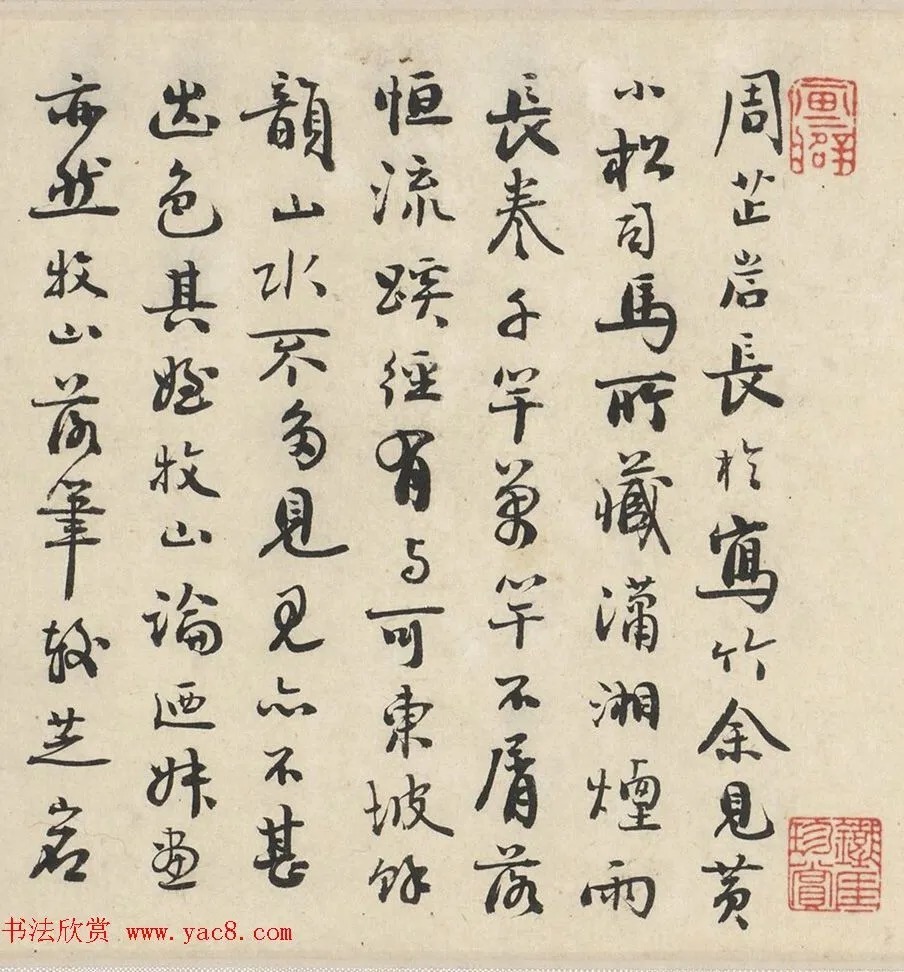 周芷岩長於寫竹余見黃
小松司馬所藏瀟湘煙雨
長卷千竿萬竿不屑落
恒流蹊徑有与可東坡餘
韻山水不多見見亦不甚
出色其姪牧山論迺妹畫
亦然牧山落筆較芝岩
珍賞
书法欣赏 www.yac8.com